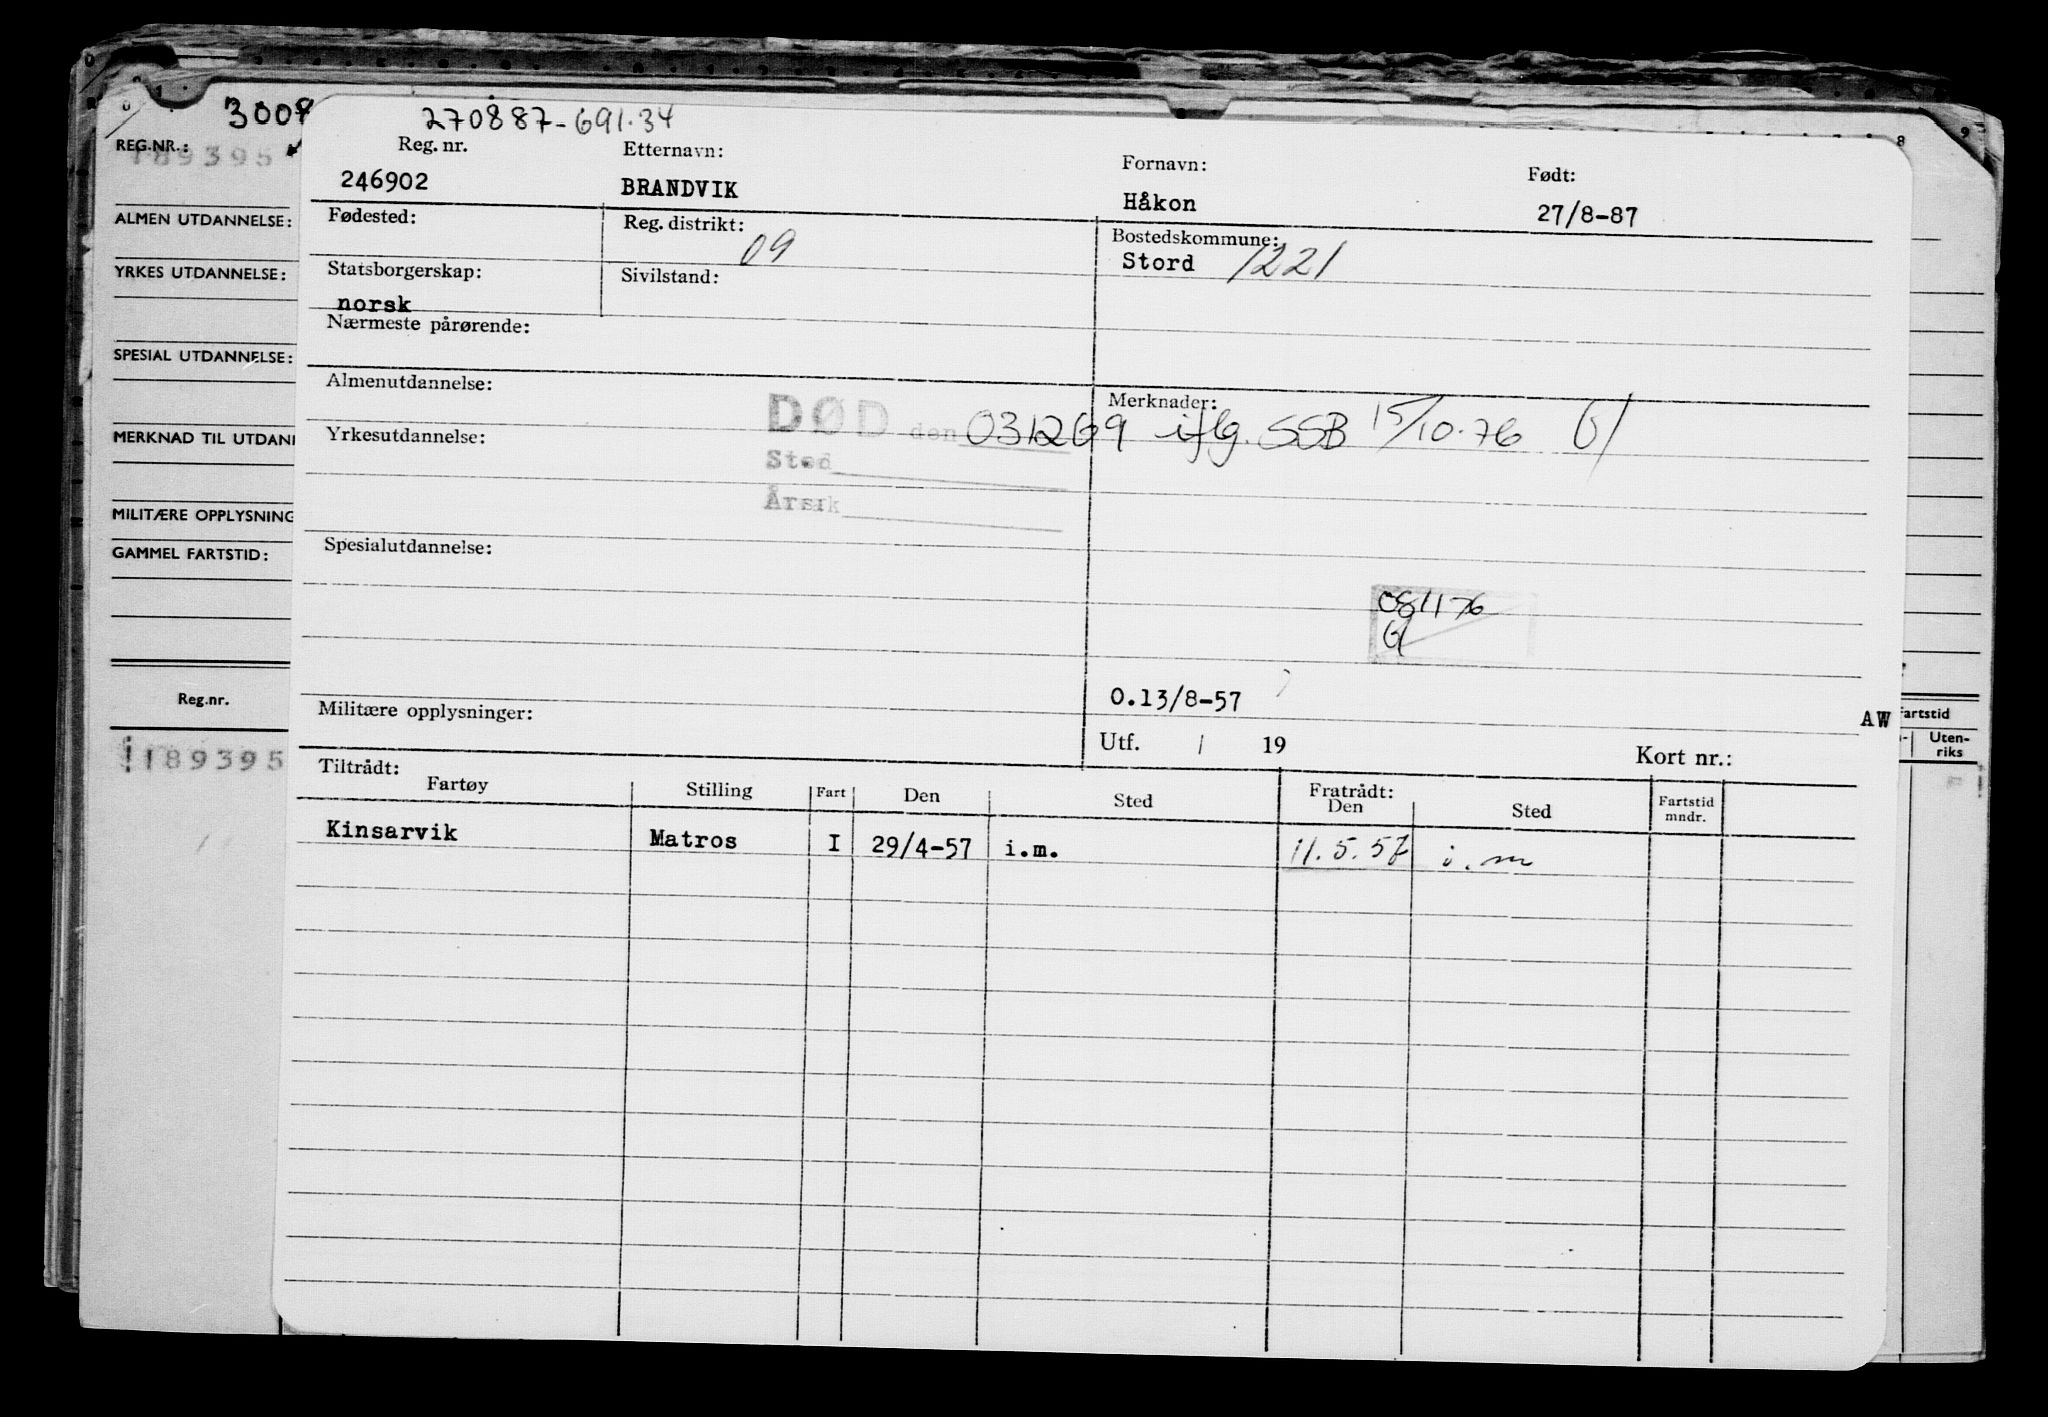 3007
270887-691.34
REG.NR.:
189395
Reg. nr.
Etternavn:
Fornavn:
Født:
246902
BRANDVIK
Håkon
27/8-87
ALMEN UTDANNELSE:
Fødested:
Reg. distrikt:
09
Bostedskommune:
Stord 1221
YRKES UTDANNELSE:
Statsborgerskap:
norsk
Sivilstand:
Nærmeste pårørende:
SPESIAL UTDANNELSE:
Almenutdannelse:
Merknader:
DØD den 031269 iflg. SSB 15/10-76 G/
MERKNAD TIL UTDAN
Yrkesutdannelse:
Sted
Årsak
MILITÆRE OPPLYSNING
GAMMEL FARTSTID:
Spesialutdannelse:
081176
G/
Reg.nr.
O.13/8-57
Militære opplysninger:
AW
Fartstid
Uten-
riks
Utf. / 19
Kort nr.:
189395
Tiltrådt:
Fartøy
Stilling
Fart
Den
Sted
Fratrådt:
Den
Sted
Fartstid
mndr.
Kinsarvik
Matros
I
29/4-57
i.m.
11.5.57
i.m